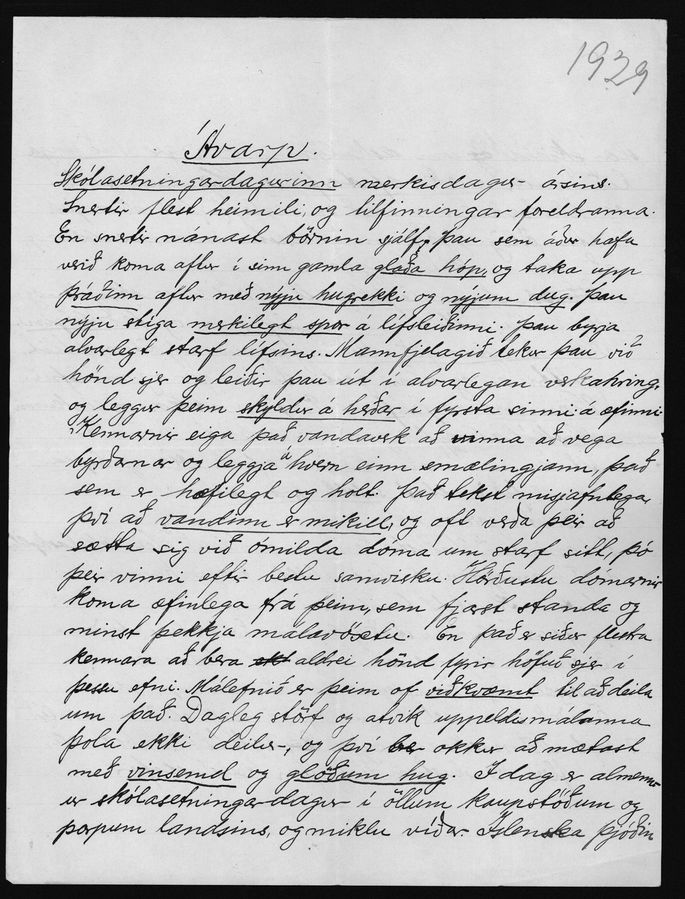 1939
Ávarp.
Skólasetningardagurinn merkisdagur ársins.
Snertir flest heimili, og tilfinningar foreldranna.
En snertir nánast börnin sjálf, þau sem áður hafa
verið koma aftur í sinn gamla glaða hóp, og taka upp
þráðinn aftur með nýju hugrekki og nýjum dug. Þau
nýju stíga merkilegt spor á lífsleiðinni. Þau byrja
alvarlegt starf lífsins. Mannfjelagið tekur þau við
hönd sjer og leiðir þau út í alvarlegan verkahring,
og leggur þeim skyldur á herðar í fyrsta sinni á æfinni.
Kennarnir eiga það vandaverk að vinna að vega
byrðarnar og leggja á hvern einn smælingjann, það
sem er hæfilegt og holt. Það tekst misjafnlega,
því að vandinn er mikill, og oft verða þeir að
sætta sig við ómilda dóma um starf sitt, þó
þeir vinni eftir bestu samvisku. Hörðustu dómarnir
koma æfinlega frá þeim, sem fjærst standa og
minst þekkja málavöxtu. En það er siður flestra
kennara að bera aldrei hönd fyrir höfuð sjer í
þessu efni. Málefnið er þeim of viðkvæmt til að deila
um það. Dagleg störf og atvik uppeldismálanna
þola ekki deilur, og því ber okkur að mætast
með vinsemd og glöðum hug. Í dag er almenn-
ur skólasetningardagur í öllum kaupstöðum og
þorpum landsins, og miklu víðar. Íslenska þjóðin